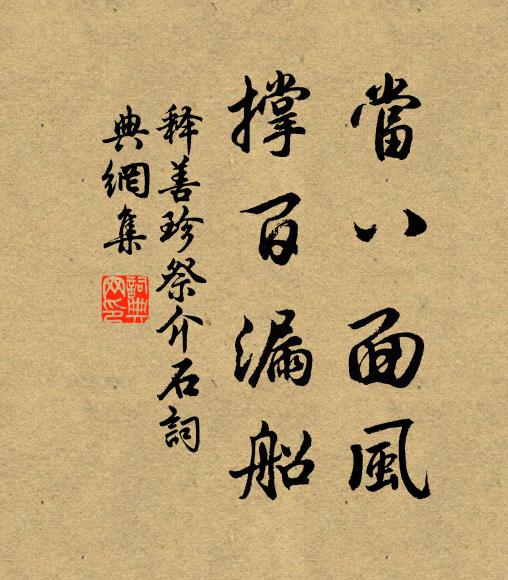 當八面風
撐百漏船
釋善珍祭介石詞
典網集
詞典網印